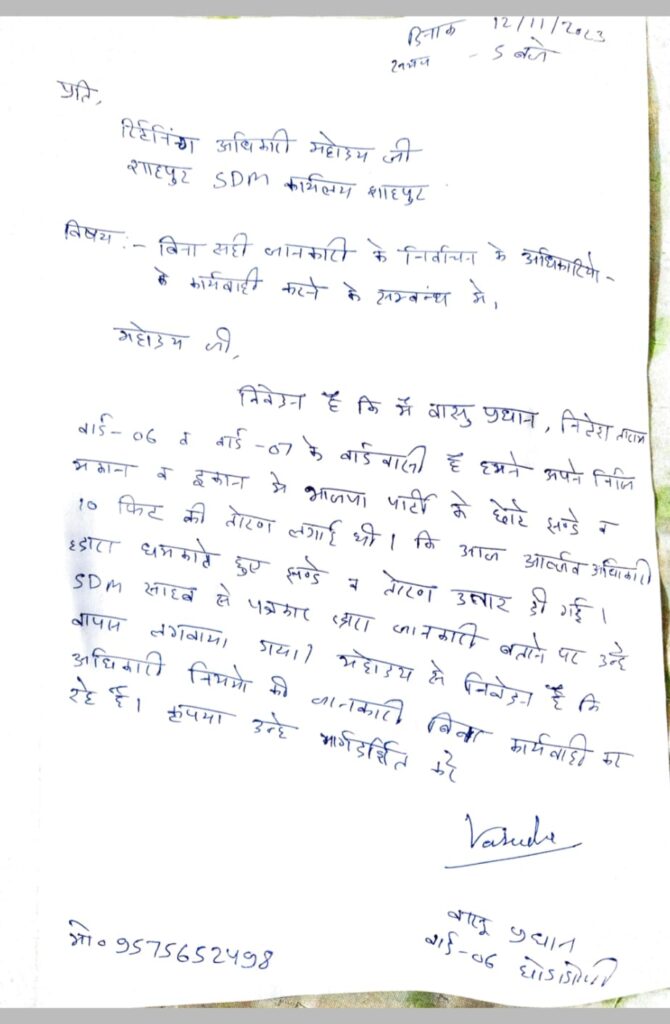 दिनांक 12/11/2023
समय - 5 बजे
प्रति,
रिर्टनिंग अधिकारी महोदय जी
शाहपुर SDM कार्यलय शाहपुर
विषय :- बिना सही जानकारी के निर्वाचन के अधिकारियो-
के कार्यवाही करने के सम्बन्ध मे,
महोदय जी,
निवेदन है कि मै वासु प्रधान, नितेश
वार्ड-06 व वार्ड-07 के वार्डवासी है हमने अपने निजि
मकान व दुकान मे भाजपा पार्टी के छोटे झण्डे व
10 फिट की तोरण लगाई थी। कि आज अधिकारी
द्वारा धमकाते हुए झण्डे व तोरण उतार दी गई।
SDM साहब से पत्रकार द्वारा जानकारी बताने पर उन्हे
वापस लगवाया गया। महोदय से निवेदन है कि
अधिकारी नियमो की जानकारी बिना कार्यवाही कर
रहे है। कृपया उन्हे मार्गदर्शित करे
Vasude
वासु प्रधान
वार्ड-06 घोडाडोंगरी
मो० 9575652498